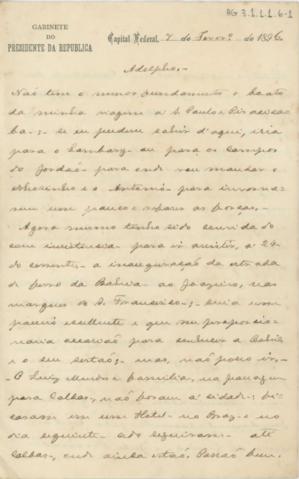 AG 3.1.1.6-1
GABINETE
DO
PRESIDENTE DA REPUBLICA
Capital Federal, 7 de Fever.º de 1896
Adolpho,
Não tem o menor fundamento o boato
da minha viagem a S. Paulo e Piracicaba
ba; se eu pudesse sahir d'aqui, iria
para o Lambary ou para os Campos
do Jordão para onde vou mandar o
e o Antonio para
um pouco e as forças.
Agora mesmo tenho sido convidado
com insistencia para ir assistir, a 24
do corrente, a inauguração da estrada
de ferro da Bahia ao Joazeiro, nas
margens do S. Francisco; seria um
passeio excellente e que me proporcio-
naria occasião para conhecer a Bahia
e o seu sertão; mas, não posso ir.
O Luiz Mundo e familia, na passagem
para Caldas, não foram á cidade; fi-
caram em um Hotel no Braz e no
dia seguinte cedo seguiram até
Caldas, onde ainda estão. Passão bem.